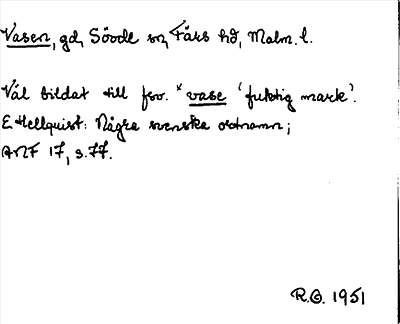 Vasen, gd, Sövde sn, Färs hd, Malm. l.
Väl bildat till fsv. *vase 'fuktig mark'.
E Hellquist: Några svenska ortnamn;
ANF 17, s. 77.
R.G. 1951